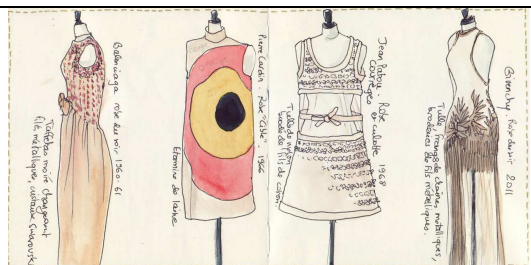 Balenciaga robe du soir 1960-61
Taffetas moiré changeant
Filé métallique, cristaux Swarovski
Pierre Cardin. Robe "Cible". 1966
Etamine de laine
Jean Patou. Robe
Courrèges et culotte 1968
Tulle de nylon
brodé de fils de coton.
Givenchy Robe du soir 2011
Tulle, frange de chaînes métalliques,
broderies de fils métalliques.